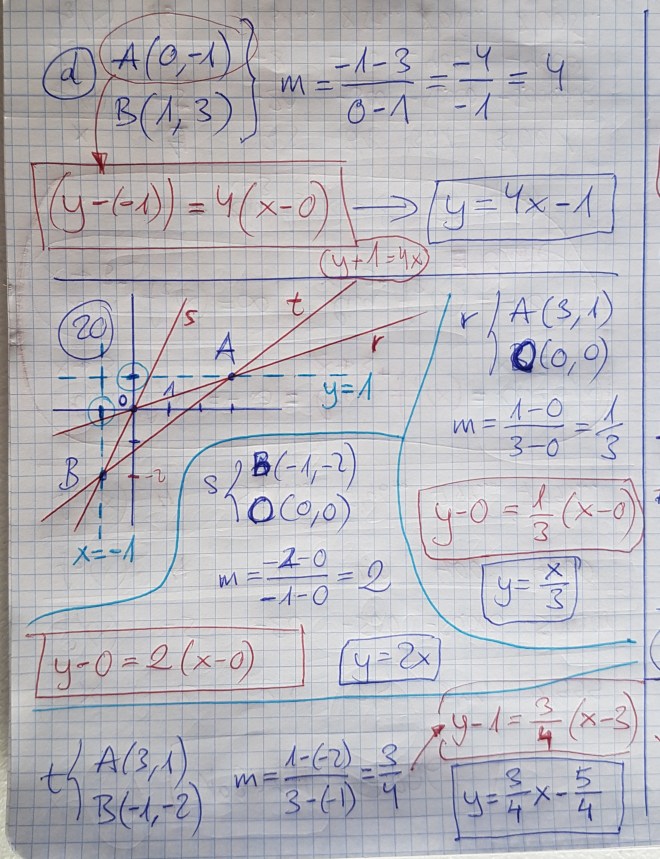 d) A(0,-1)
B(1,3)
m = \frac{-1-3}{0-1} = \frac{-4}{-1} = 4
(y-(-1)) = 4(x-0) → y = 4x-1
(y+1=4x)
20
s
t
r
A
y=1
0
1
B
-2
x=-1
r { A(3,1)
O(0,0)
m = \frac{1-0}{3-0} = \frac{1}{3}
y-0 = \frac{1}{3}(x-0)
y = \frac{x}{3}
s { B(-1,-2)
O(0,0)
m = \frac{-2-0}{-1-0} = 2
y-0 = 2(x-0)
y = 2x
t { A(3,1)
B(-1,-2)
m = \frac{1-(-2)}{3-(-1)} = \frac{3}{4}
y-1 = \frac{3}{4}(x-3)
y = \frac{3}{4}x - \frac{5}{4}